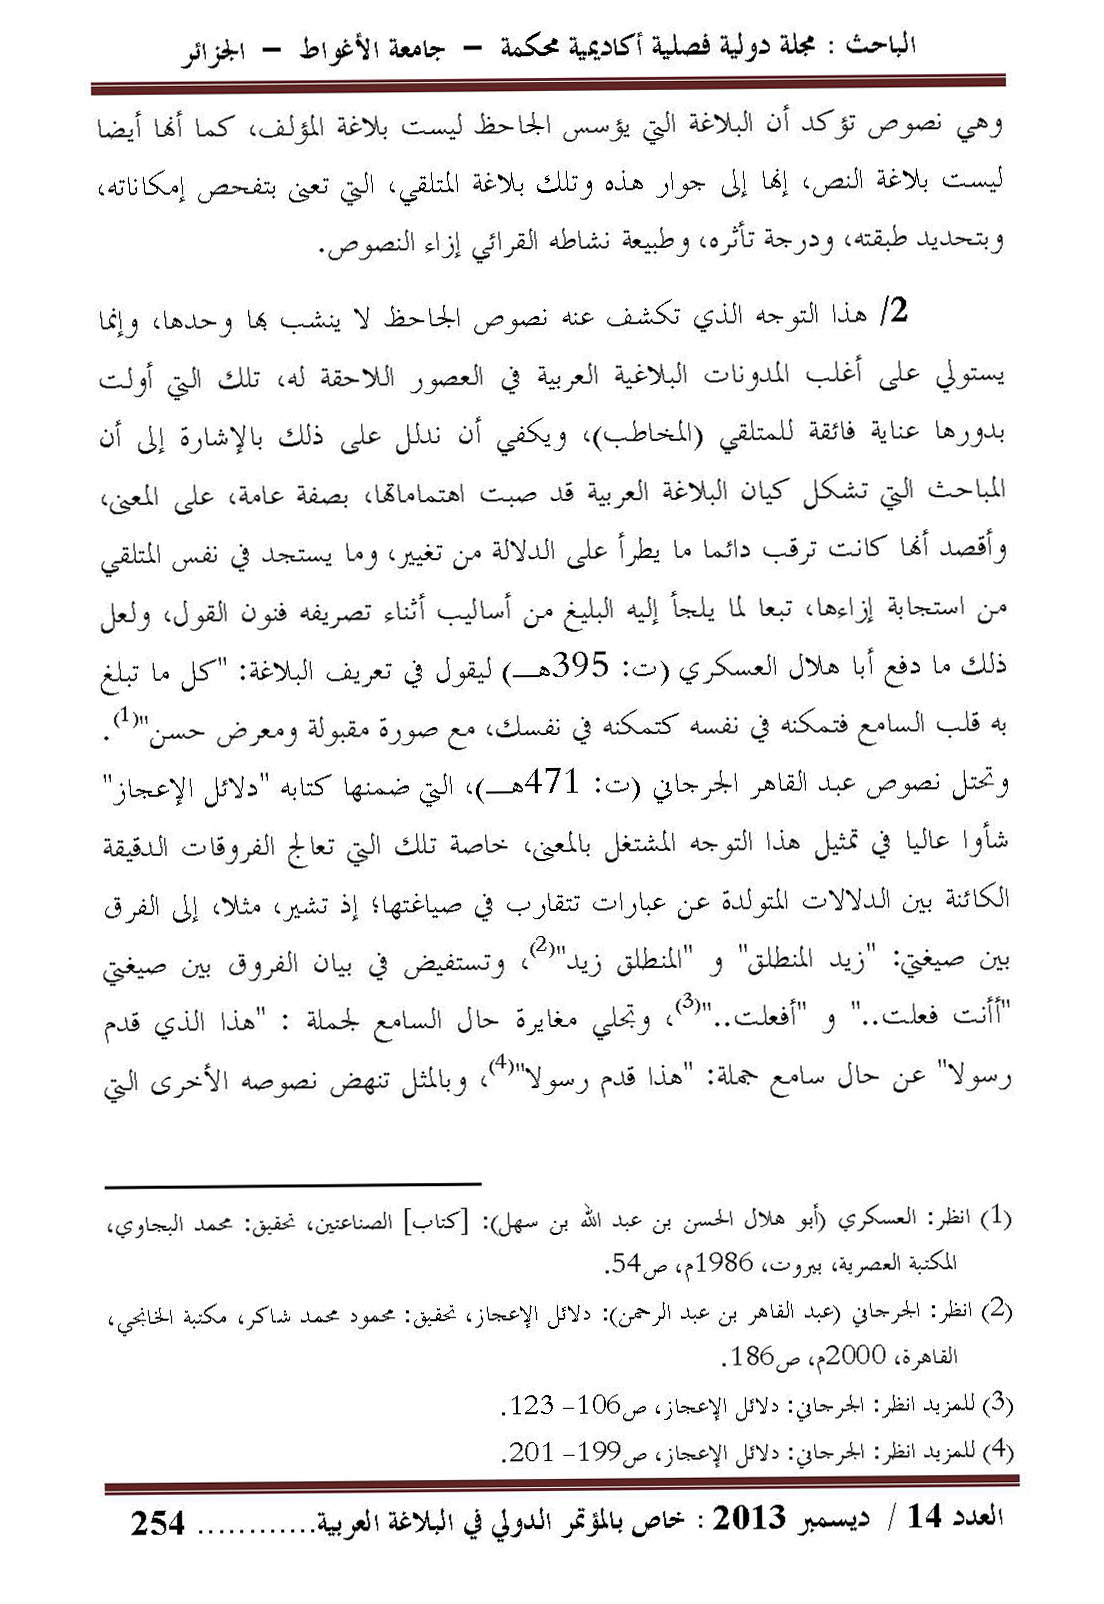 الباحث : مجلة دولية فصلية أكاديمية محكمة – جامعة الأغواط – الجزائر
وهي نصوص تؤكد أن البلاغة التي يؤسس الجاحظ ليست بلاغة المؤلف، كما أنها أيضا
ليست بلاغة النص، إنها إلى جوار هذه وتلك بلاغة المتلقي، التي تعنى بتفحص إمكاناته،
وبتحديد طبقته، ودرجة تأثره، وطبيعة نشاطه القرائي إزاء النصوص.
2/ هذا التوجه الذي تكشف عنه نصوص الجاحظ لا ينشب بها وحدها، وإنما
يستولي على أغلب المدونات البلاغية العربية في العصور اللاحقة له، تلك التي أولت
بدورها عناية فائقة للمتلقي (المخاطب)، ويكفي أن ندلل على ذلك بالإشارة إلى أن
المباحث التي تشكل كيان البلاغة العربية قد صبت اهتماماتها، بصفة عامة، على المعنى،
وأقصد أنها كانت ترقب دائما ما يطرأ على الدلالة من تغيير، وما يستجد في نفس المتلقي
من استجابة إزاءها، تبعا لما يلجأ إليه البليغ من أساليب أثناء تصريفه فنون القول، ولعل
ذلك ما دفع أبا هلال العسكري (ت: 395هــ) ليقول في تعريف البلاغة: "كل ما تبلغ
به قلب السامع فتمكنه في نفسه كتمكنه في نفسك، مع صورة مقبولة ومعرض حسن"(1).
وتحتل نصوص عبد القاهر الجرجاني (ت: 471هــ)، التي ضمنها كتابه "دلائل الإعجاز"
شأوا عاليا في تمثيل هذا التوجه المشتغل بالمعنى، خاصة تلك التي تعالج الفروقات الدقيقة
الكائنة بين الدلالات المتولدة عن عبارات تتقارب في صياغتها؛ إذ تشير، مثلا، إلى الفرق
بين صيغتي: "زيد المنطلق" و "المنطلق زيد"(2)، وتستفيض في بيان الفروق بين صيغتي
"أأنت فعلت.." و "أفعلت.."(3)، وتجلي مغايرة حال السامع لجملة : "هذا الذي قدم
رسولا" عن حال سامع جملة: "هذا قدم رسولا"(4)، وبالمثل تنهض نصوصه الأخرى التي
(1) انظر: العسكري (أبو هلال الحسن بن عبد الله بن سهل): [كتاب] الصناعتين، تحقيق: محمد البجاوي،
المكتبة العصرية، بيروت، 1986م، ص54.
(2) انظر: الجرجاني (عبد القاهر بن عبد الرحمن): دلائل الإعجاز، تحقيق: محمود محمد شاكر، مكتبة الخانجي،
القاهرة، 2000م، ص186.
(3) للمزيد انظر: الجرجاني: دلائل الإعجاز، ص106– 123.
(4) للمزيد انظر: الجرجاني: دلائل الإعجاز، ص199– 201.
العدد 14 / ديسمبر 2013 : خاص بالمؤتمر الدولي في البلاغة العربية............ 254